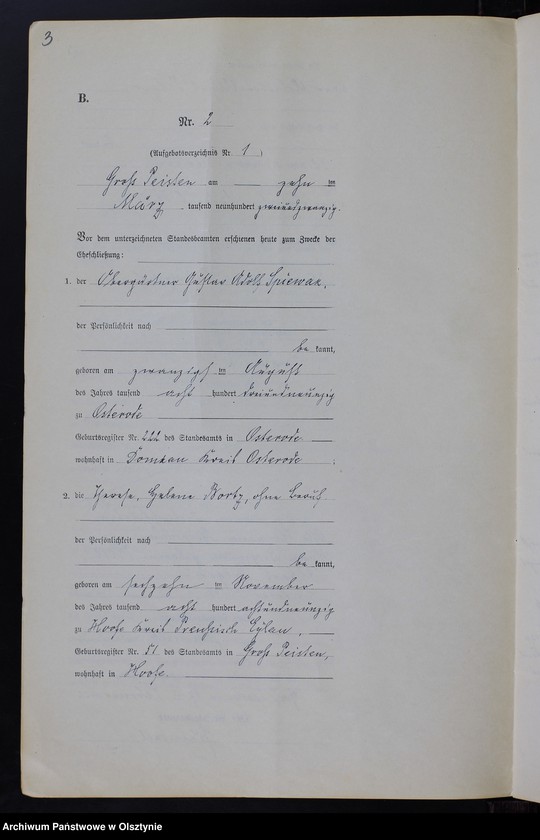 3
B.
Nr. 2
(Aufgebotsverzeichnis Nr. 1)
Groß Peisten am zehnten
März tausend neunhundert zweiundzwanzig.
Vor dem unterzeichneten Standesbeamten erschienen heute zum Zwecke der
Eheschließung:
1. der Obergärtner Gustav Adolf Spiewak,
der Persönlichkeit nach
bekannt,
geboren am zwanzigsten August
des Jahres tausend acht hundert dreiundneunzig
zu Osterode
Geburtsregister Nr. 222 des Standesamts in Osterode
wohnhaft in Döhlau Kreis Osterode;
2. die Therese, Helene Bortz, ohne Beruf
der Persönlichkeit nach
bekannt,
geboren am sechzehnten November
des Jahres tausend acht hundert achtundneunzig
zu Hoofe Kreis Preußisch Eylau,
Geburtsregister Nr. 51 des Standesamts in Groß Peisten,
wohnhaft in Hoofe.
Archiwum Państwowe w Olsztynie